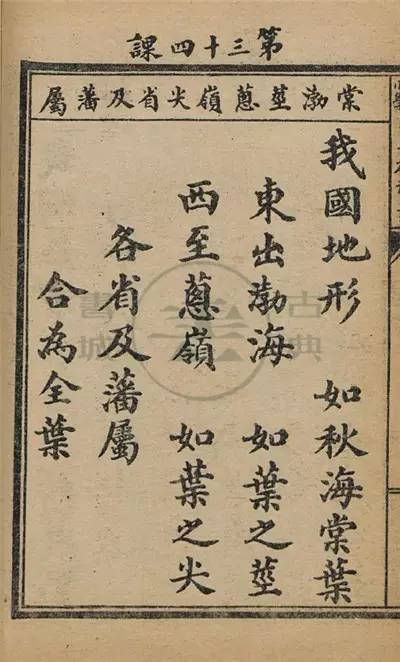 第三十四課
棠渤莖蔥嶺尖省及藩屬
我國地形 如秋海棠葉
東出渤海 如葉之莖
西至蔥嶺 如葉之尖
各省及藩屬
合為全葉
古典書城